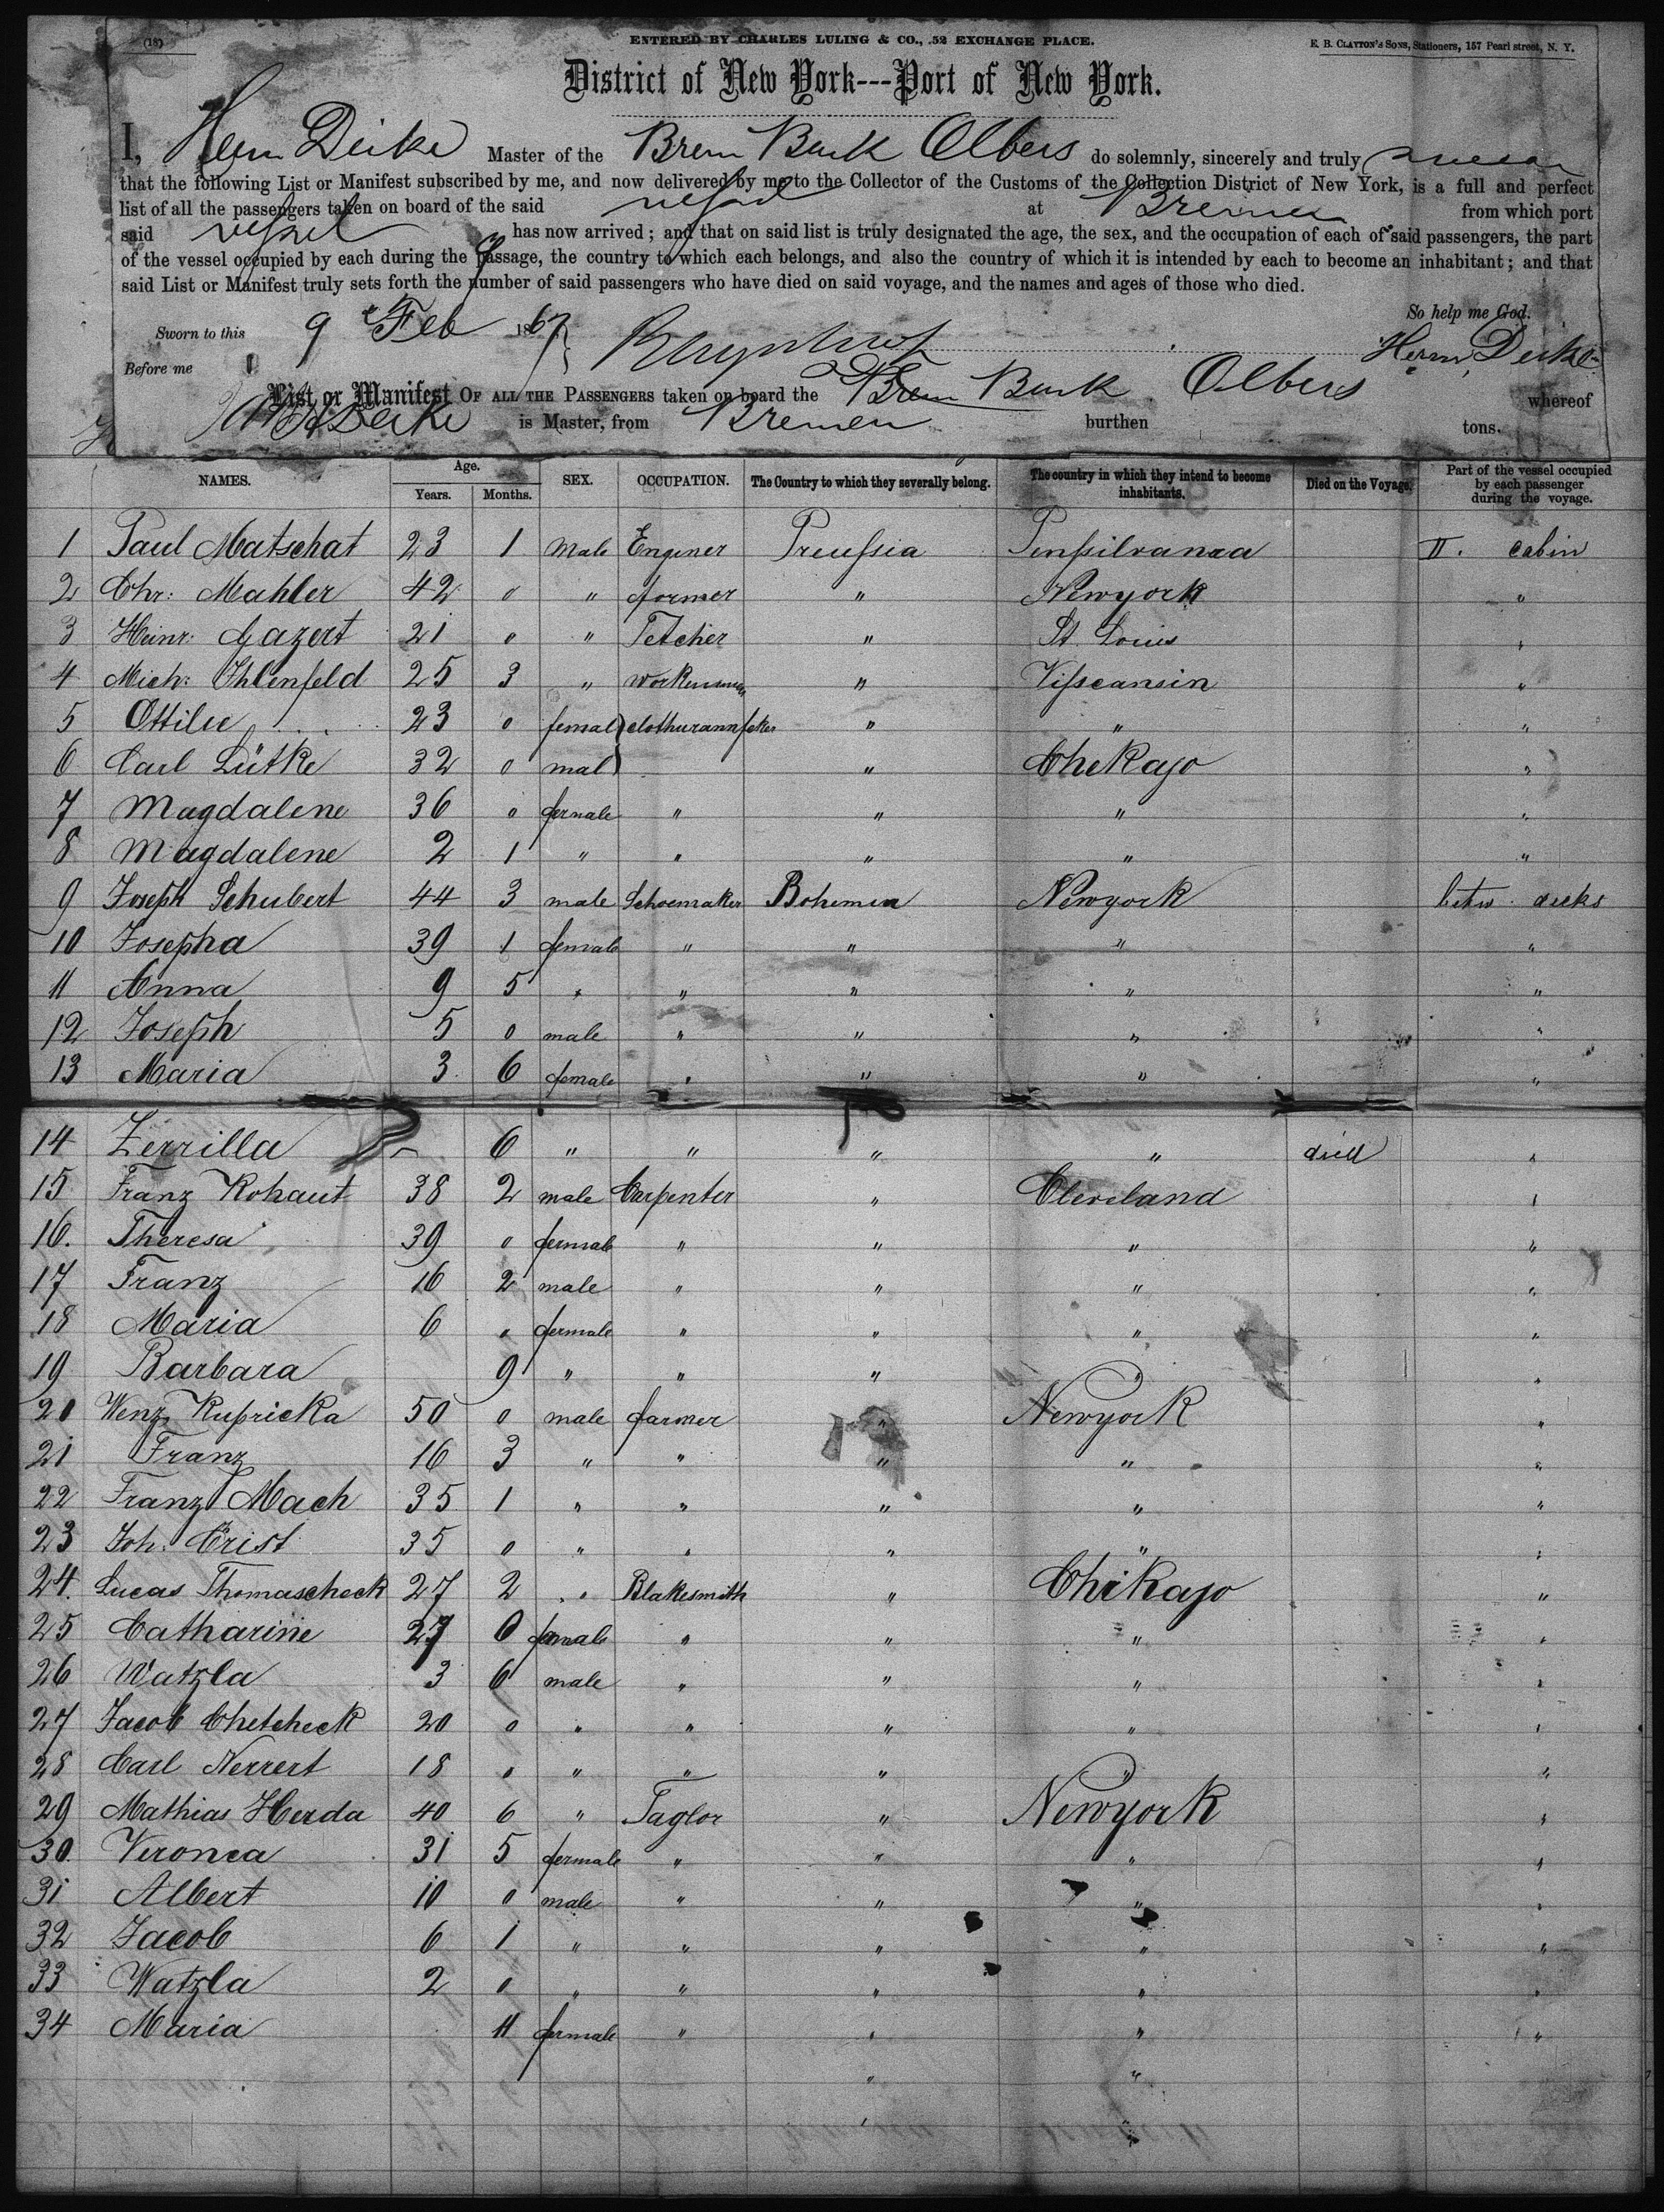 (18)
ENTERED BY CHARLES LULING & CO., 52 EXCHANGE PLACE.
E. B. CLAYTON'S SONS, Stationers, 157 Pearl street, N. Y.
District of New York---Port of New York.
I, Herm Deike Master of the Brem Bark Olbers do solemnly, sincerely and truly swear
that the following List or Manifest subscribed by me, and now delivered by me to the Collector of the Customs of the Collection District of New York, is a full and perfect
list of all the passengers taken on board of the said vessel at Bremen from which port
said vessel has now arrived; and that on said list is truly designated the age, the sex, and the occupation of each of said passengers, the part
of the vessel occupied by each during the passage, the country to which each belongs, and also the country of which it is intended by each to become an inhabitant; and that
said List or Manifest truly sets forth the number of said passengers who have died on said voyage, and the names and ages of those who died.
So help me God.
Sworn to this 9 Feb 1867
Herm Deike
Before me
List or Manifest OF ALL THE PASSENGERS taken on board the Brem Bark Olbers whereof
Deike is Master, from Bremen burthen tons.
NAMES. Age. Years. Months. SEX. OCCUPATION. The Country to which they severally belong. The country in which they intend to become inhabitants. Died on the Voyage. Part of the vessel occupied by each passenger during the voyage.
1 Paul Matschat 23 1 Male Enginer Preussia Pensilvania II. cabin
2 Chr: Mahler 42 0 " farmer " Newyork "
3 Heinr: Gazert 21 0 " Tetcher " St. Louis "
4 Mich: Ihlenfeld 25 3 " workman " Visscansin "
5 Ottilie 23 0 femal " " "
6 Carl Lütke 32 0 mal " Chekago "
7 Magdalene 36 0 female " " " "
8 Magdalene 2 1 " " " " "
9 Joseph Schubert 44 3 male Schoemaker Bohemia Newyork betw. decks
10 Josepha 39 1 female " " " "
11 Anna 9 5 " " " " "
12 Joseph 5 0 male " " " "
13 Maria 3 6 female " " " "
14 Zerrilla - 6 " " " " died "
15 Franz Kohaut 38 2 male Carpenter " Cleveland "
16. Theresa 39 0 female " " " "
17 Franz 16 2 male " " " "
18 Maria 6 0 female " " " "
19 Barbara 9 " " " " "
20 Wenz Kupricka 50 0 male farmer " Newyork "
21 Franz 16 3 " " " " "
22 Franz Mach 35 1 " " " " "
23 Joh. Crist 35 0 " " " " "
24. Lucas Thomascheck 27 2 " Blakesmith " Chikago "
25 Catharine 27 0 female " " " "
26 Watzla 3 6 male " " " "
27 Jacob Chetcheck 20 0 " " " " "
28 Carl Nerrert 18 0 " " " " "
29 Mathias Herda 40 6 " Taylor " Newyork "
30. Veronca 31 5 female " " " "
31 Albert 10 0 male " " " "
32 Jacob 6 1 " " " " "
33 Watzla 2 0 " " " " "
34 Maria 11 female " " " "
" "
" "